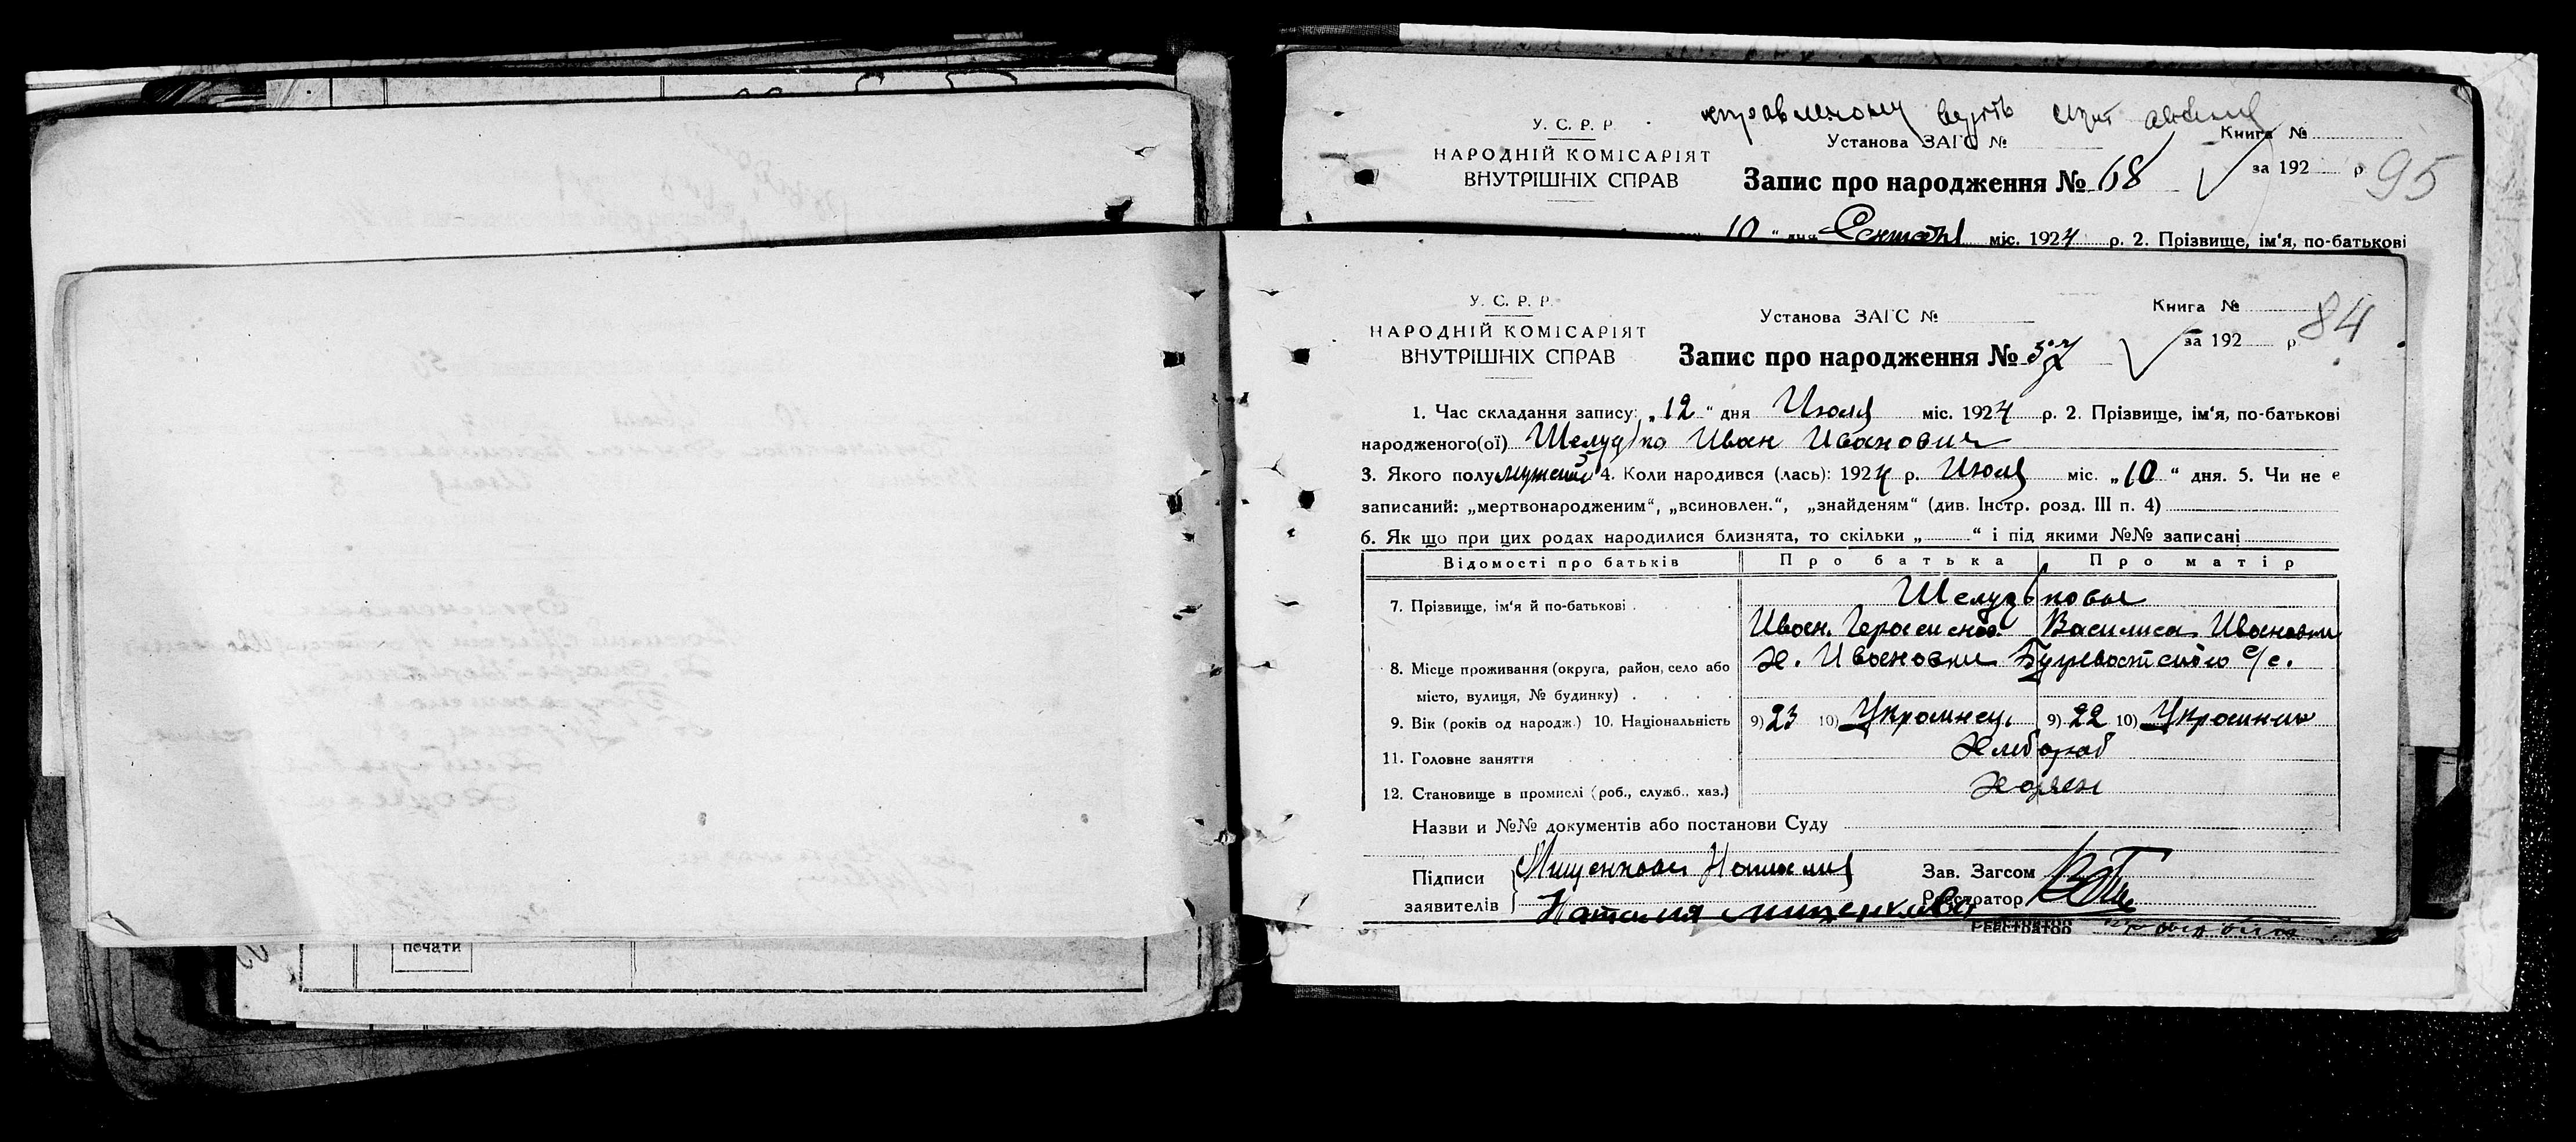 У. С. Р. Р.
НАРОДНІЙ КОМІСАРІЯТ
ВНУТРІШНІХ СПРАВ
Установа ЗАГС №
Книга №
за 192 р 95
Запис про народження № 68
10 " дня міс. 1924 р. 2. Прізвище, ім'я, по-батькові
У. С. Р. Р.
НАРОДНІЙ КОМІСАРІЯТ
ВНУТРІШНІХ СПРАВ
Установа ЗАГС №
Книга №
за 192 р 84
Запис про народження № 57
1. Час складання запису: „12" дня Июля міс. 1924 р. 2. Прізвище, ім'я, по-батькові
народженого(ої) Шелудько Иван Иванович
3. Якого полу мужской 4. Коли народився (лась): 1924 р. Июля міс. „10" дня. 5. Чи не є
записаний: „мертвонародженим", „всиновлен.", „знайденям" (див. Інстр. розд. III п. 4)
6. Як що при цих родах народилися близнята, то скільки „ " і під якими №№ записані
Відомості про батьків Про батька Про матір
7. Прізвище, ім'я й по-батькові Шелудьковы
Иван Герасимов. Василиса Ивановна
8. Місце проживання (округа, район, село або х. Ивановки с/с.
місто, вулиця, № будинку)
9. Вік (років од народж.) 10. Національність 9) 23 10) Украинец 9) 22 10) Украинка
11. Головне заняття Хлебороб
12. Становище в промислі (роб., служб., хаз.) Хозяен
Назви и №№ документів або постанови Суду
Підписи Мищенкова Наталия Зав. Загсом
заявителів Наталия Реєстратор
Реєстратор
печати